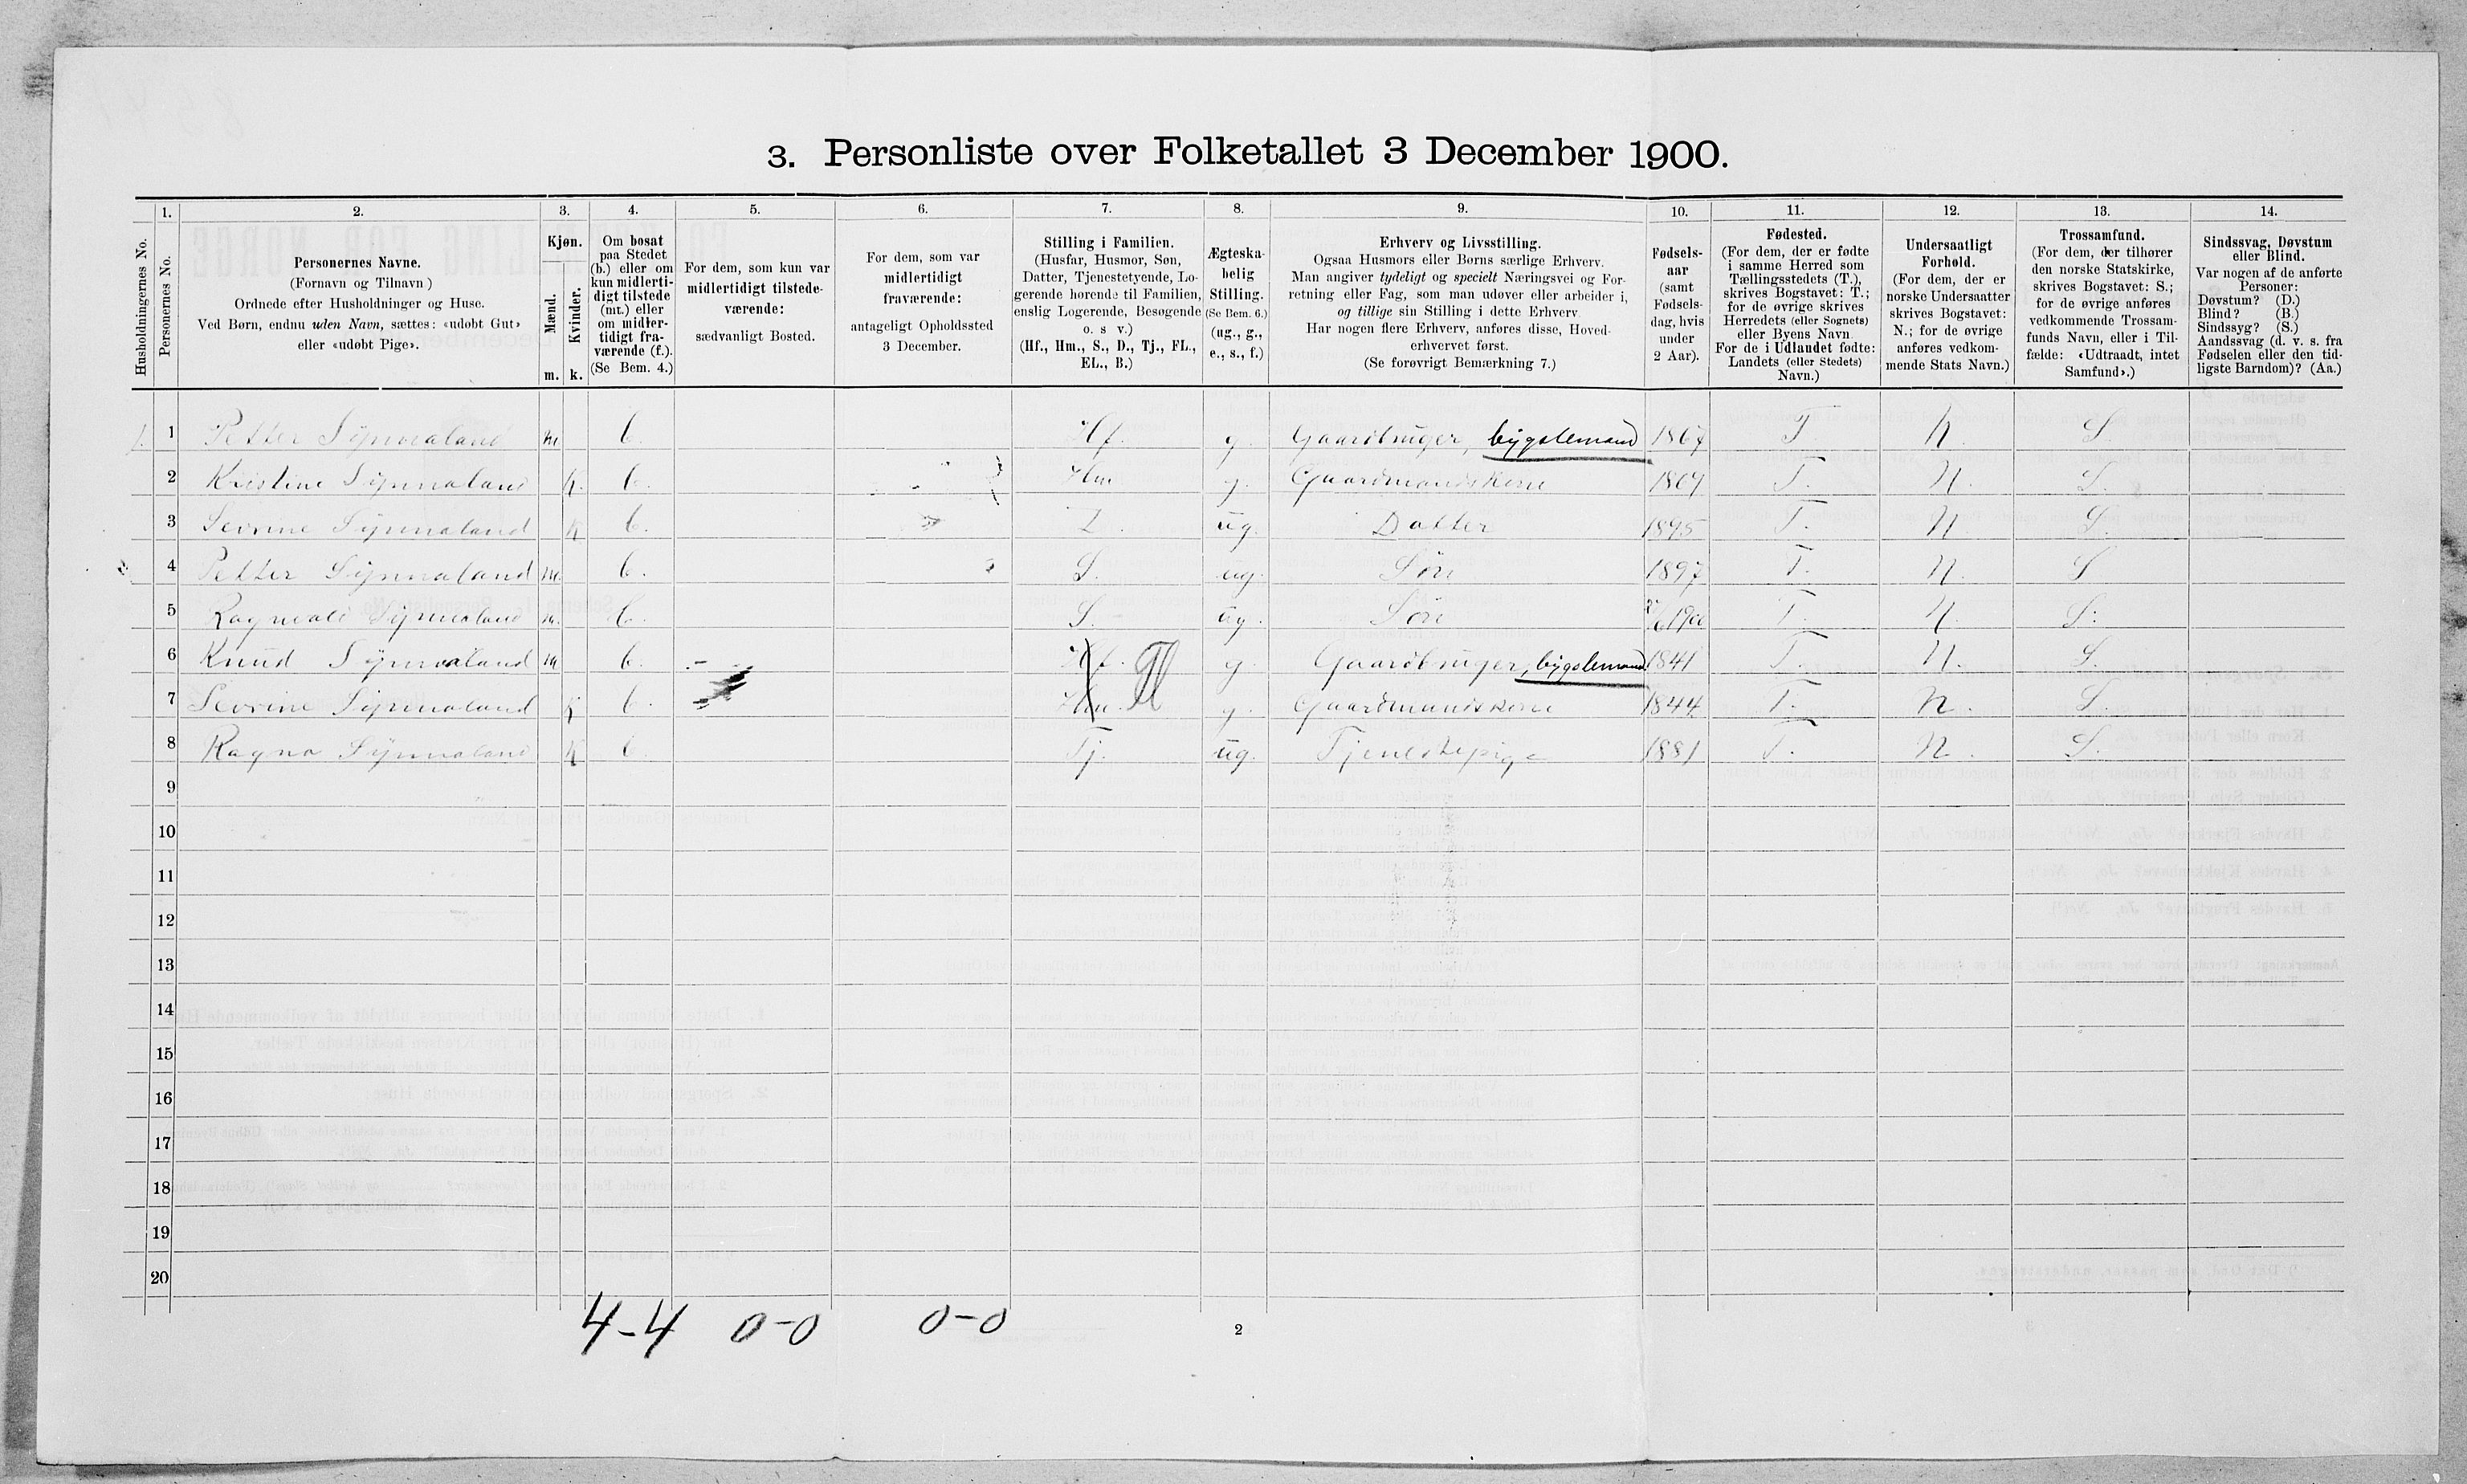 3. Personliste over Folketallet 3 December 1900.
Husholdningernes No.
1. Personernes No.
2. Personernes Navne.
(Fornavn og Tilnavn)
Ordnede efter Husholdninger og Huse.
Ved Børn, endnu uden Navn, sættes: «udøbt Gut»
eller «udøbt Pige».
3. Kjøn.
Mænd. m.
Kvinder. k.
4. Om bosat
paa Stedet
(b.) eller om
kun midlerti-
digt tilstede
(mt.) eller
om midler-
tidigt fra-
værende (f.).
(Se Bem. 4.)
5. For dem, som kun var
midlertidigt tilstede-
værende:
sædvanligt Bosted.
6. For dem, som var
midlertidigt
fraværende:
antageligt Opholdssted
3 December.
7. Stilling i Familien.
(Husfar, Husmor, Søn,
Datter, Tjenestetyende, Lo-
gerende hørende til Familien,
enslig Logerende, Besøgende
o. s v.)
(Hf., Hm., S., D., Tj., FL.,
EL., B.)
8. Ægteska-
belig
Stilling.
(Se Bem. 6.)
(ug., g.,
e., s., f.)
9. Erhverv og Livsstilling.
Ogsaa Husmors eller Børns særlige Erhverv.
Man angiver tydeligt og specielt Næringsvei og For-
retning eller Fag, som man udøver eller arbeider i,
og tillige sin Stilling i dette Erhverv.
Har nogen flere Erhverv, anføres disse, Hoved-
erhvervet først.
(Se forøvrigt Bemærkning 7.)
10. Fødsels-
aar
(samt
Fødsels-
dag, hvis
under
2 Aar).
11. Fødested.
(For dem, der er fødte
i samme Herred som
Tællingsstedets (T.),
skrives Bogstavet: T.;
for de øvrige skrives
Herredets (eller Sognets)
eller Byens Navn
For de i Udlandet fødte:
Landets (eller Stedets)
Navn.)
12. Undersaatligt
Forhold.
(For dem, der er
norske Undersaatter
skrives Bogstavet:
N.; for de øvrige
anføres vedkom-
mende Stats Navn.)
13. Trossamfund.
(For dem, der tilhører
den norske Statskirke,
skrives Bogstavet: S.;
for de øvrige anføres
vedkommende Trossam-
funds Navn, eller i Til-
fælde: «Udtraadt, intet
Samfund».)
14. Sindssvag, Døvstum
eller Blind.
Var nogen af de anførte
Personer:
Døvstum? (D.)
Blind? (B.)
Sindssyg? (S.)
Aandssvag (d. v. s. fra
Fødselen eller den tid-
ligste Barndom)? (Aa.)
1. 1 Petter Synnaland m b. Hf. g. Gaardbruger, bygslemand 1867 T. N. S.
2 Kristine Synnaland k. b. Hm g. Gaardmandskone T. N. S.
3 Sevrine Synnaland k b. D. ug. Datter 1895 T. N. S.
4 Petter Synnaland m. b. S. ug. Søn 1897 T. N. S
5 Ragnvald Synnaland m. b. S. ug. Søn 1900 T. N. S.
6 Knud Synnaland m b. Hf. Fl g. Gaardbruger, bygslemand 1841 T. N. S.
7 Sevrine Synnaland k b. Hm. g. Gaardmandskone 1844 T. N. S.
8 Ragna Synnaland k b. Tj. ug. Tjenestepige 1881 T. N. S.
9
10
11
12
13
14
15
16
17
18
19
20
4-4 0-0 0-0
2